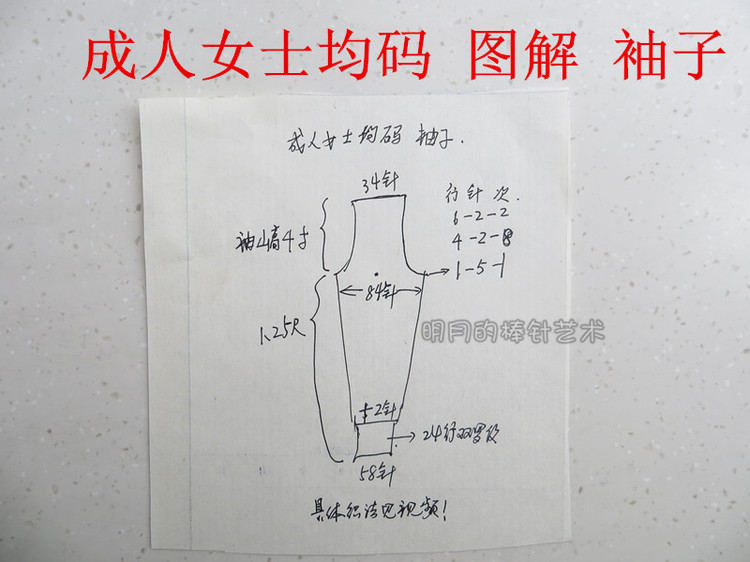 成人女士均码 图解 袖子
成人女士均码 袖子.
34针
行针次.
6-2-2
4-2-8
1-5-1
袖山高4寸
84针
1.25尺
明月的棒针艺术
±2针
24行双罗纹
58针
具体织法见视频!